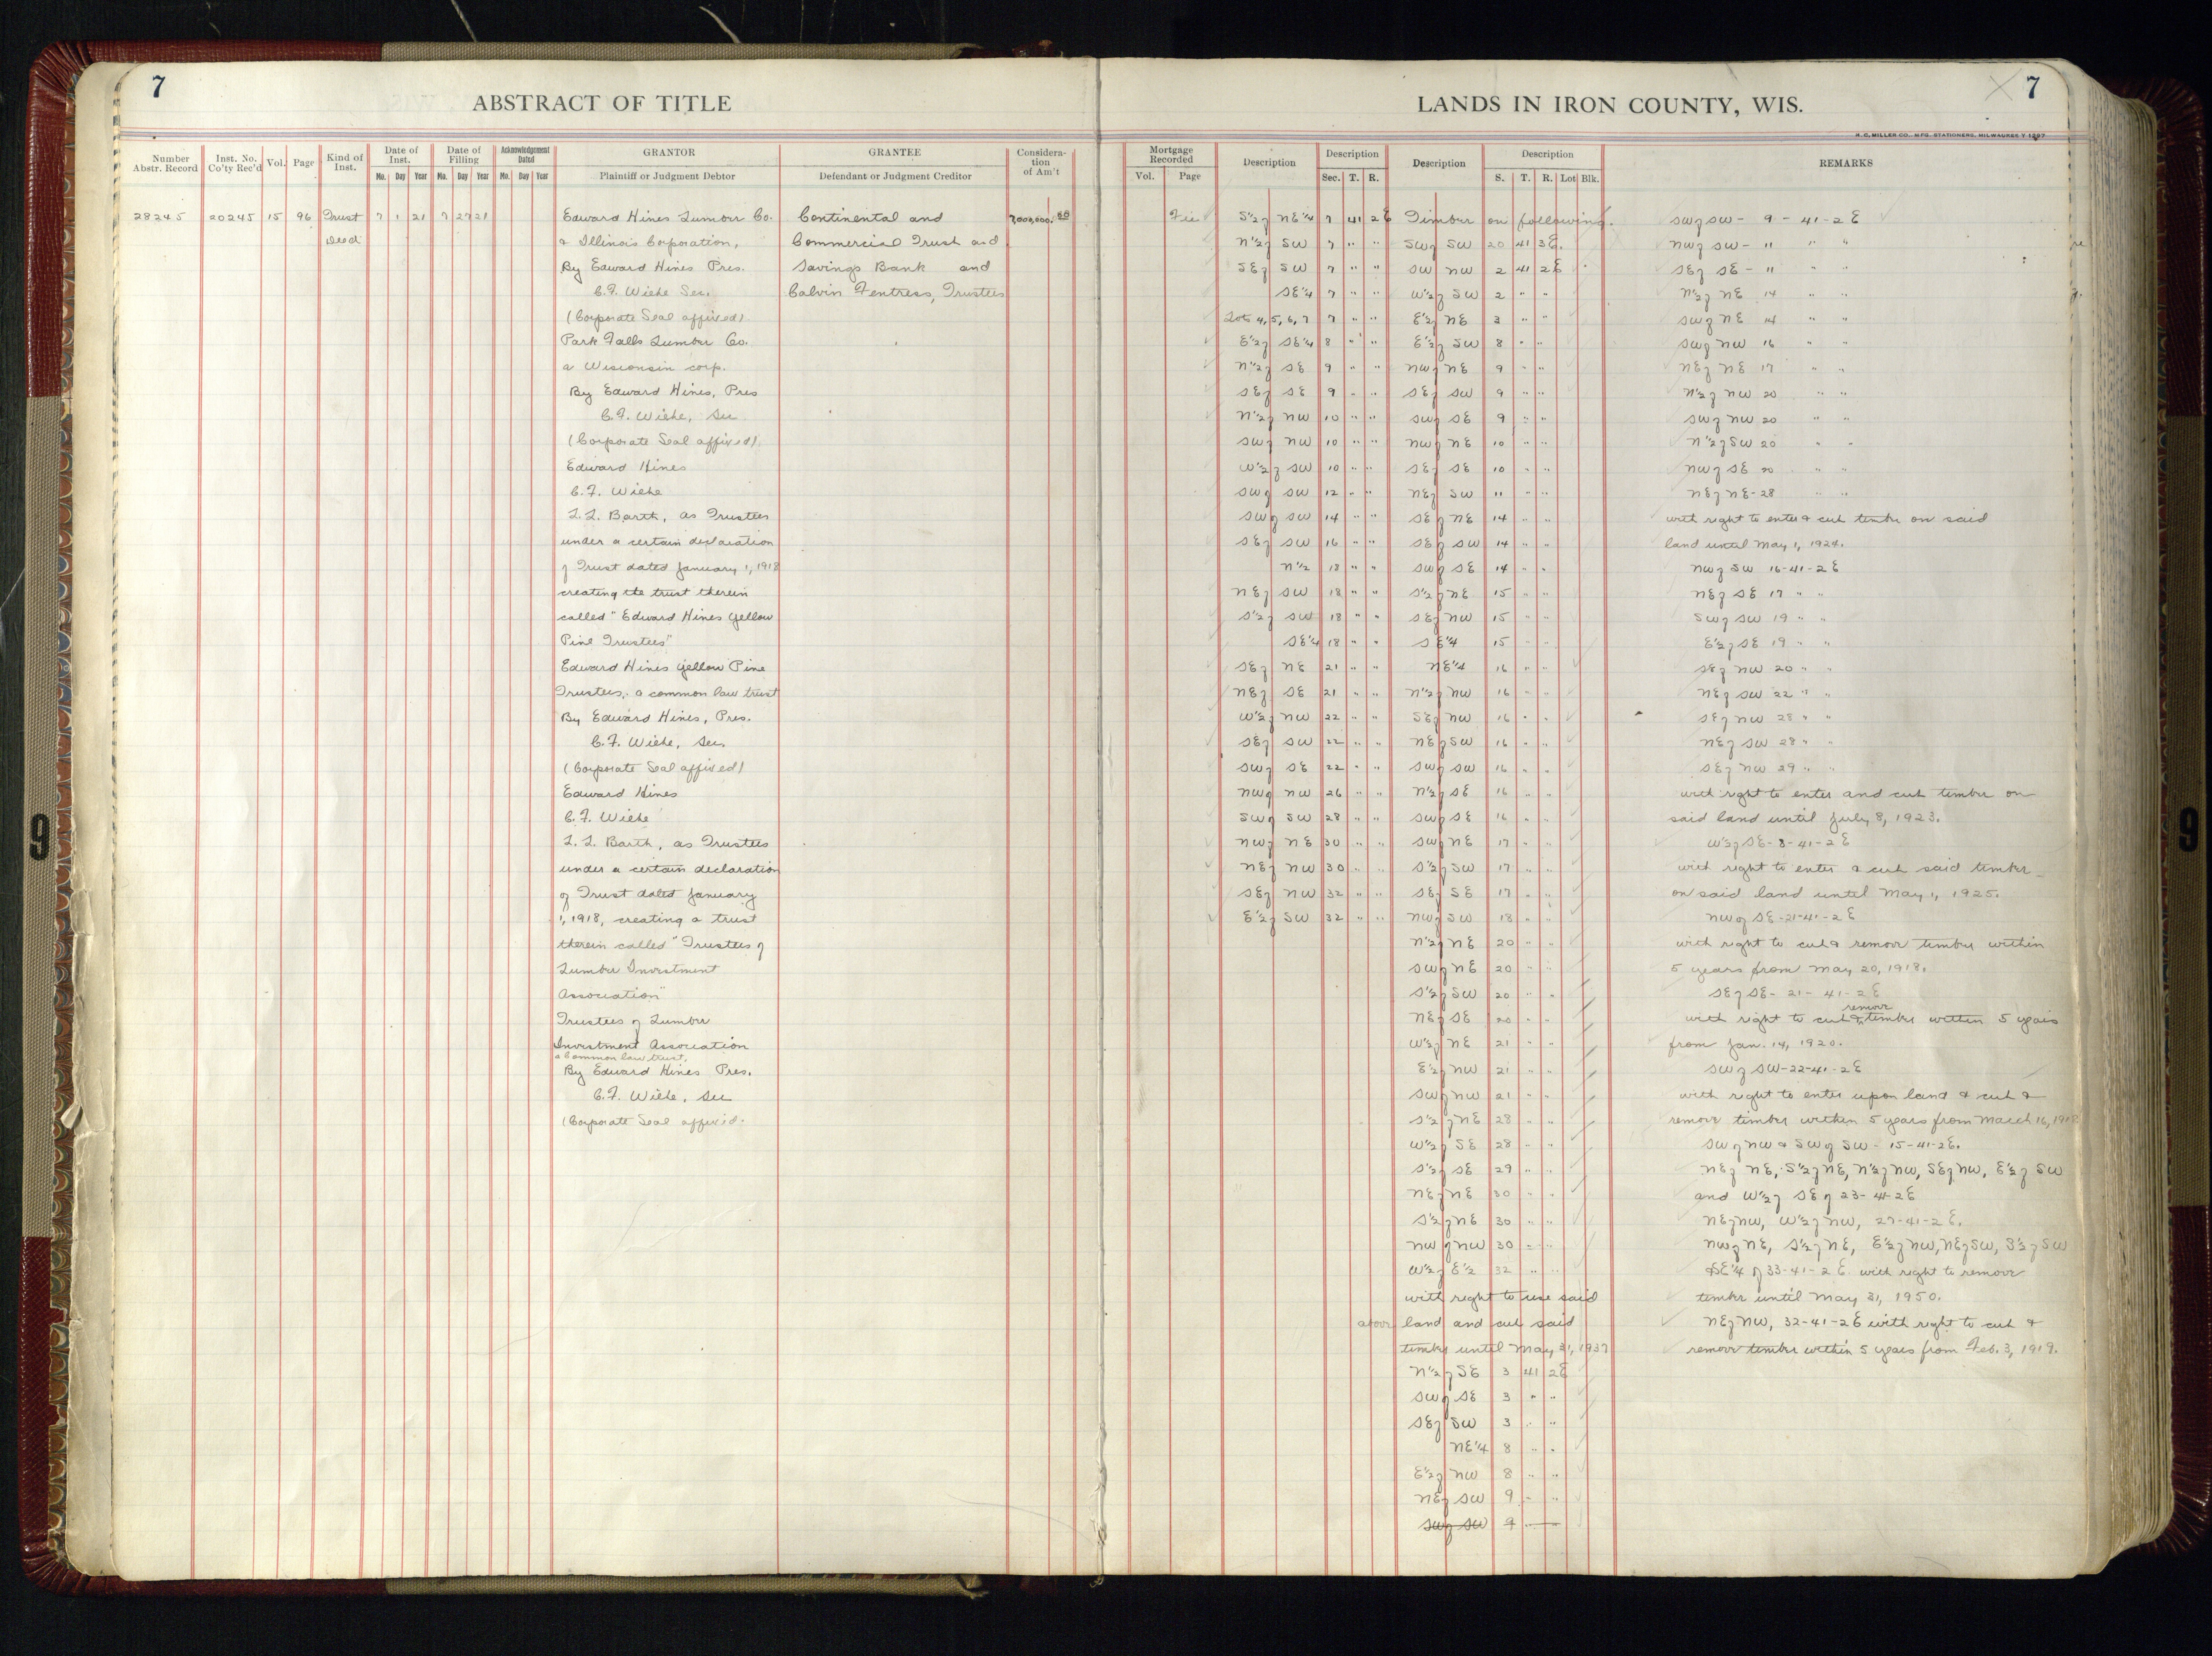 7
ABSTRACT OF TITLE
Number Abstr. Record
Inst. No. Co'ty Rec'd
Vol.
Page
Kind of Inst.
Date of Inst.
Mo. Day Year
Date of Filling
Mo. Day Year
Acknowledgement Dated
Mo. Day Year
GRANTOR
Plaintiff or Judgment Debtor
GRANTEE
Defendant or Judgment Creditor
Considera-
tion
of Am't
28245 20245 15 96 Trust 7 1 21 7 27 21
Deed
Edward Hines Lumber Co.
a Illinois Corporation,
By Edward Hines Pres.
C.F. Wiehe Sec.
(Corporate Seal affixed)
Park Falls Lumber Co.
a Wisconsin corp.
By Edward Hines, Pres
C.F. Wiehe, Sec
(Corporate Seal affixed)
Edward Hines
C.F. Wiehe
L.L. Barth, as Trustees
under a certain declaration
of Trust dated January 1, 1918
creating the trust therein
called "Edward Hines Yellow
Pine Trustees"
Edward Hines Yellow Pine
Trustees, a common law trust
By Edward Hines, Pres.
C.F. Wiehe, Sec.
(Corporate Seal affixed)
Edward Hines
C.F. Wiehe
L.L. Barth, as Trustees
under a certain declaration
of Trust dated January
1, 1918, creating a trust
therein called "Trustees of
Lumber Investment
Association"
Trustees of Lumber
Investment Association
a Common law trust,
By Edward Hines Pres.
C.F. Wiehe, Sec
(Corporate Seal affixed.
Continental and
Commercial Trust and
Savings Bank and
Calvin Fentress, Trustees
7,000,000.00
LANDS IN IRON COUNTY, WIS.
7
H. C. MILLER CO., MFG. STATIONERS, MILWAUKEE
Mortgage Recorded
Vol. Page
Description
Description
Sec. T. R.
Description
Description
S. T. R. Lot Blk.
REMARKS
S½ of NE¼ 7 41 2E
N½ of SW 7 " "
SE of SW 7 " "
SE¼ 7 " "
Lots 4, 5, 6, 7 7 " "
E½ of SE¼ 8 " "
N½ of SE 9 " "
SE of SE 9 " "
N½ of NW 10 " "
SW of NW 10 " "
W½ of SW 10 " "
SW of SW 12 " "
SW of SW 14 " "
SE of SW 16 " "
N½ 18 " "
NE of SW 18 " "
S½ of SW 18 " "
SE¼ 18 " "
SE of NE 21 " "
NE of SE 21 " "
W½ of NW 22 " "
SE of SW 22 " "
SW of SE 22 " "
NW of NW 26 " "
SW of SW 28 " "
NW of NE 30 " "
NE of NW 30 " "
SE of NW 32 " "
E½ of SW 32 " "
Timber on following.
SW of SW 20 41 3E.
SW NW 2 41 2E
W½ of SW 2 " "
E½ of NE 3 " "
E½ of SW 8 " "
NW of NE 9 " "
SE of SW 9 " "
SW of SE 9 " "
NW of NE 10 " "
SE of SE 10 " "
NE of SW 11 " "
SE of NE 14 " "
SE of SW 14 " "
SW of SE 14 " "
S½ of NE 15 " "
SE of NW 15 " "
SE¼ 15 " "
NE¼ 16 " "
N½ of NW 16 " "
SE of NW 16 " "
NE of SW 16 " "
SW of SW 16 " "
N½ of SE 16 " "
SW of SE 16 " "
SW of NE 17 " "
S½ of SW 17 " "
SE of SE 17 " "
NW of SW 18 " "
N½ of NE 20 " "
SW of NE 20 " "
S½ of SW 20 " "
NE of SE 20 " "
W½ of NE 21 " "
E½ of NW 21 " "
SW of NW 21 " "
S½ of NE 28 " "
W½ of SE 28 " "
S½ of SE 29 " "
NE of NE 30 " "
S½ of NE 30 " "
NW of NW 30 " "
W½ of E½ 32 " "
with right to use said
above land and cut said
timber until May 31, 1937
N½ of SE 3 41 2E
SW of SE 3 " "
SE of SW 3 " "
NE¼ 8 " "
E½ of NW 8 " "
NE of SW 9 " "
SW of SW 9
SW of SW - 9 - 41 - 2E
NW of SW - 11 " "
SE of SE - 11 " "
N½ of NE 14 " "
SW of NE 14 " "
SW of NW 16 " "
NE of NE 17 " "
N½ of NW 20 " "
SW of NW 20 " "
N½ of SW 20 " "
NW of SE 20 " "
NE of NE - 28 " "
with right to enter & cut timber on said
land until May 1, 1924.
NW of SW 16-41-2E
NE of SE 17 " "
SW of SW 19 " "
E½ of SE 19 " "
SE of NW 20 " "
NE of SW 22 " "
SE of NW 28 " "
NE of SW 28 " "
SE of NW 29 " "
with right to enter and cut timber on
said land until July 8, 1923.
W½ of SE-8-41-2E
with right to enter & cut said timber
on said land until May 1, 1925.
NW of SE-21-41-2E
with right to cut & remove timber within
5 years from May 20, 1918.
SE of SE - 21 - 41 - 2E
with right to cut & remove timber within 5 years
from Jan. 14, 1920.
SW of SW-22-41-2E
with right to enter upon land & cut &
remove timber within 5 years from March 16, 1918
SW of NW & SW of SW - 15-41-2E.
NE of NE, S½ of NE, N½ of NW, SE of NW, E½ of SW
and W½ of SE of 23-41-2E
NE of NW, W½ of NW, 27-41-2E.
NW of NE, S½ of NE, E½ of NW, NE of SW, S½ of SW
SE¼ of 33-41-2E with right to remove
timber until May 31, 1950.
NE of NW, 32-41-2E with right to cut &
remove timber within 5 years from Feb. 3, 1919.
9
9